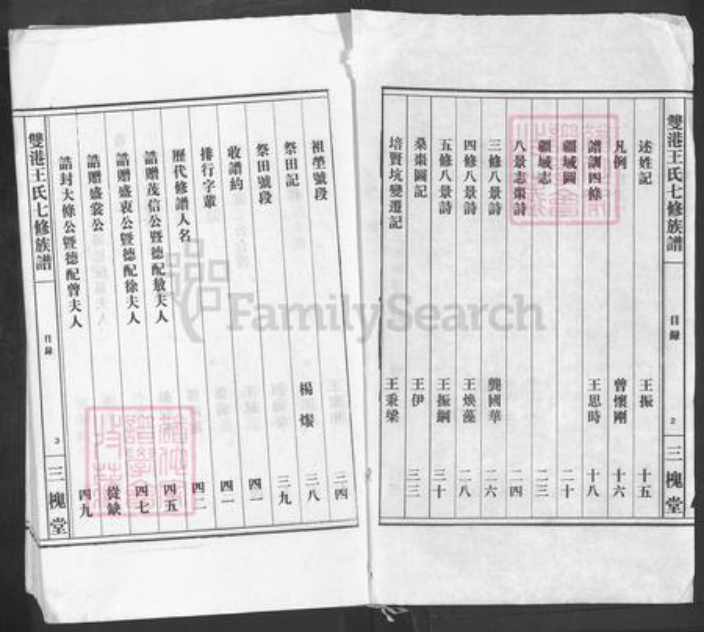 雙港王氏七修族譜 目錄 2 三槐堂
述姓記 王振 十五
凡例 曾懷剛 十六
譜訓四條 王思時 十八
疆域圖 二十
疆域志 二三
八景志棗詩 二四
三修八景詩 龔國華 二六
四修八景詩 王煥藻 二八
五修八景詩 王振綱 三十
桑棗園記 王伊 三三
培賢坑變遷記 王秉梁 三四
祖塋號段 楊燦 三八
祭田記 三九
祭田號段 四一
收譜約 四一
排行字輩 四二
歷代修譜人名 四五
誥贈茂信公暨德配敖夫人 四七
誥贈盛衷公暨德配徐夫人 從缺
誥贈盛裳公 四九
誥封大條公暨德配曾夫人
雙港王氏七修族譜 目錄 3 三槐堂
FamilySearch